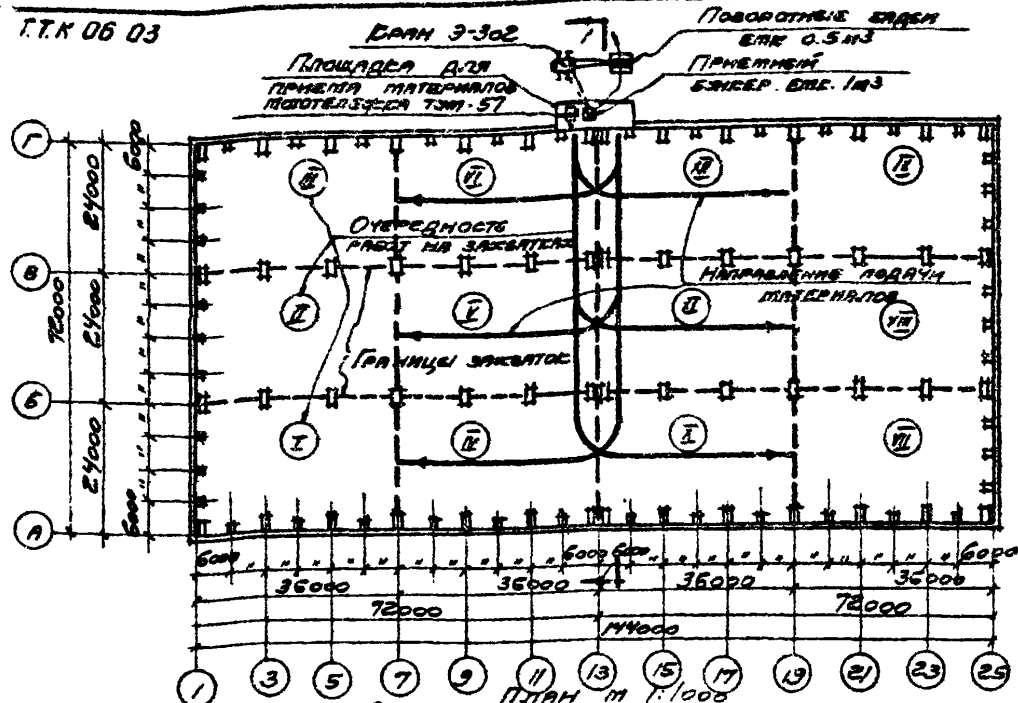 Т.Т.К 06 03
Кран Э-302
Поворотные бадьи
емк 0.5 м3
Площадка для
приема материалов
мототележка ТЭМ-57
Приемный
бункер. емк. 1м3
1
Г
В
Б
А
6000
24000
24000
24000
72000
6000
III
VI
XII
IX
Очередность
работ на захватках
Направление подачи
материалов
II
V
XI
VIII
Границы захваток
I
IV
X
VII
6000
6000
6000
6000
36000
36000
36000
36000
72000
72000
144000
1
3
5
7
9
11
13
15
17
19
21
23
25
План М 1:1000